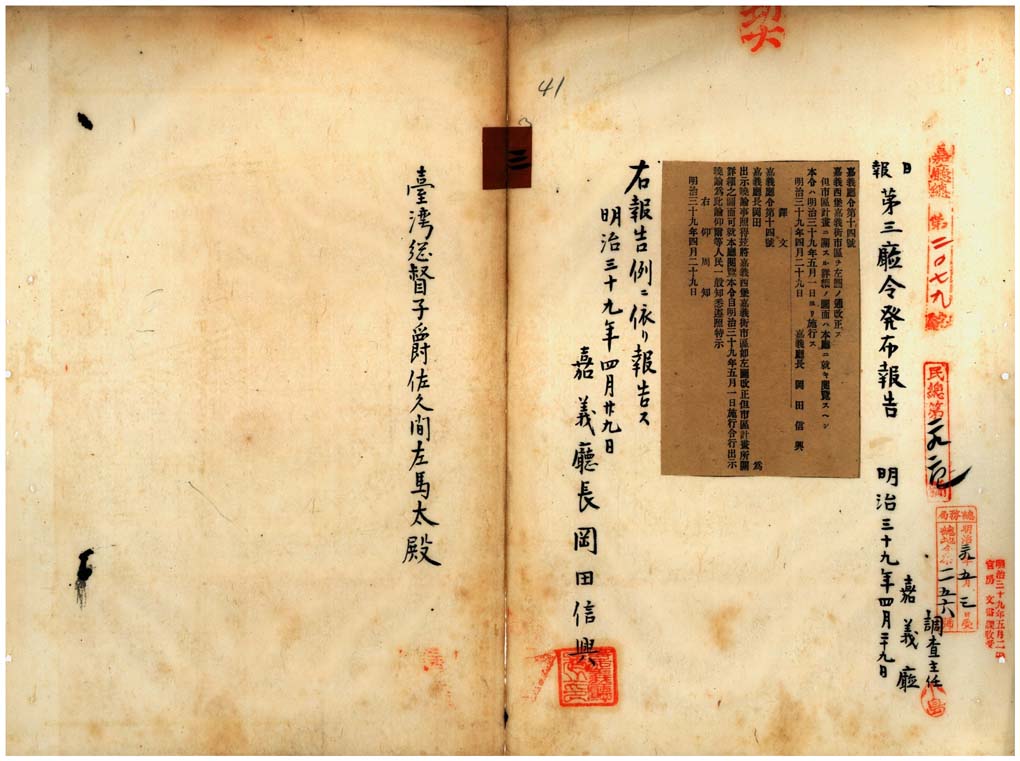 41
嘉廳總第二〇七九號
民總第
總務局
明治卅九年五月三日受
二五六
明治三十九年五月二日
官房文書課收受
調査主任
小島
嘉義廳
日報第三廳令発布報告 明治三十九年四月二十九日
嘉義廳令第十四號
嘉義西堡嘉義街市區ヲ左圖ノ通改正ス
但市區計畫ニ關スル詳細ノ圖面ハ本廳ニ就キ閲覽スヘシ
本令ハ明治三十九年五月一日ヨリ施行ス
明治三十九年四月二十九日 嘉義廳長 岡田信興
譯文
嘉義廳令第十四號
嘉義廳長岡田 爲
出示曉諭事照得茲將嘉義西堡嘉義街市區都左圖改正但市區計畫所關
詳細之圖面可就本廳閲覽本令自明治三十九年五月一日施行合行出示
曉諭爲此諭仰爾等人民一般知悉遵照特示
右仰周知
明治三十九年四月二十九日
右報告例ニ依リ報告ス
明治三十九年四月廿九日
嘉義廳長岡田信興
三
臺湾総督子爵佐久間左馬太殿